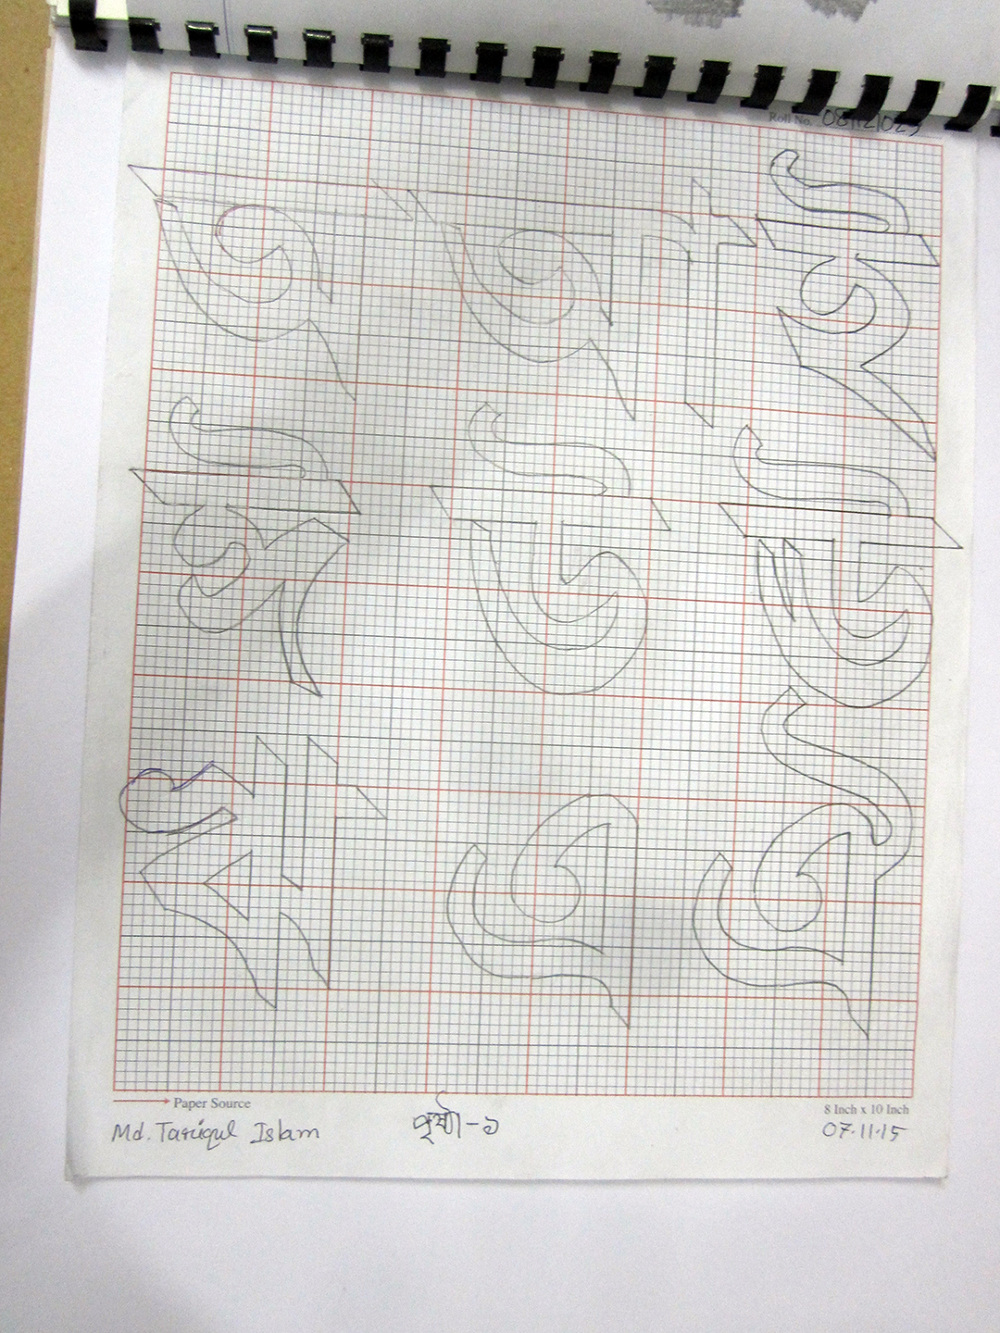 Roll No.
অ আ ই
ঈ উ ঊ
ঋ এ ঐ
Paper Source
8 Inch x 10 Inch
Md. Tariqul Islam পৃষ্ঠা-১ 07.11.15